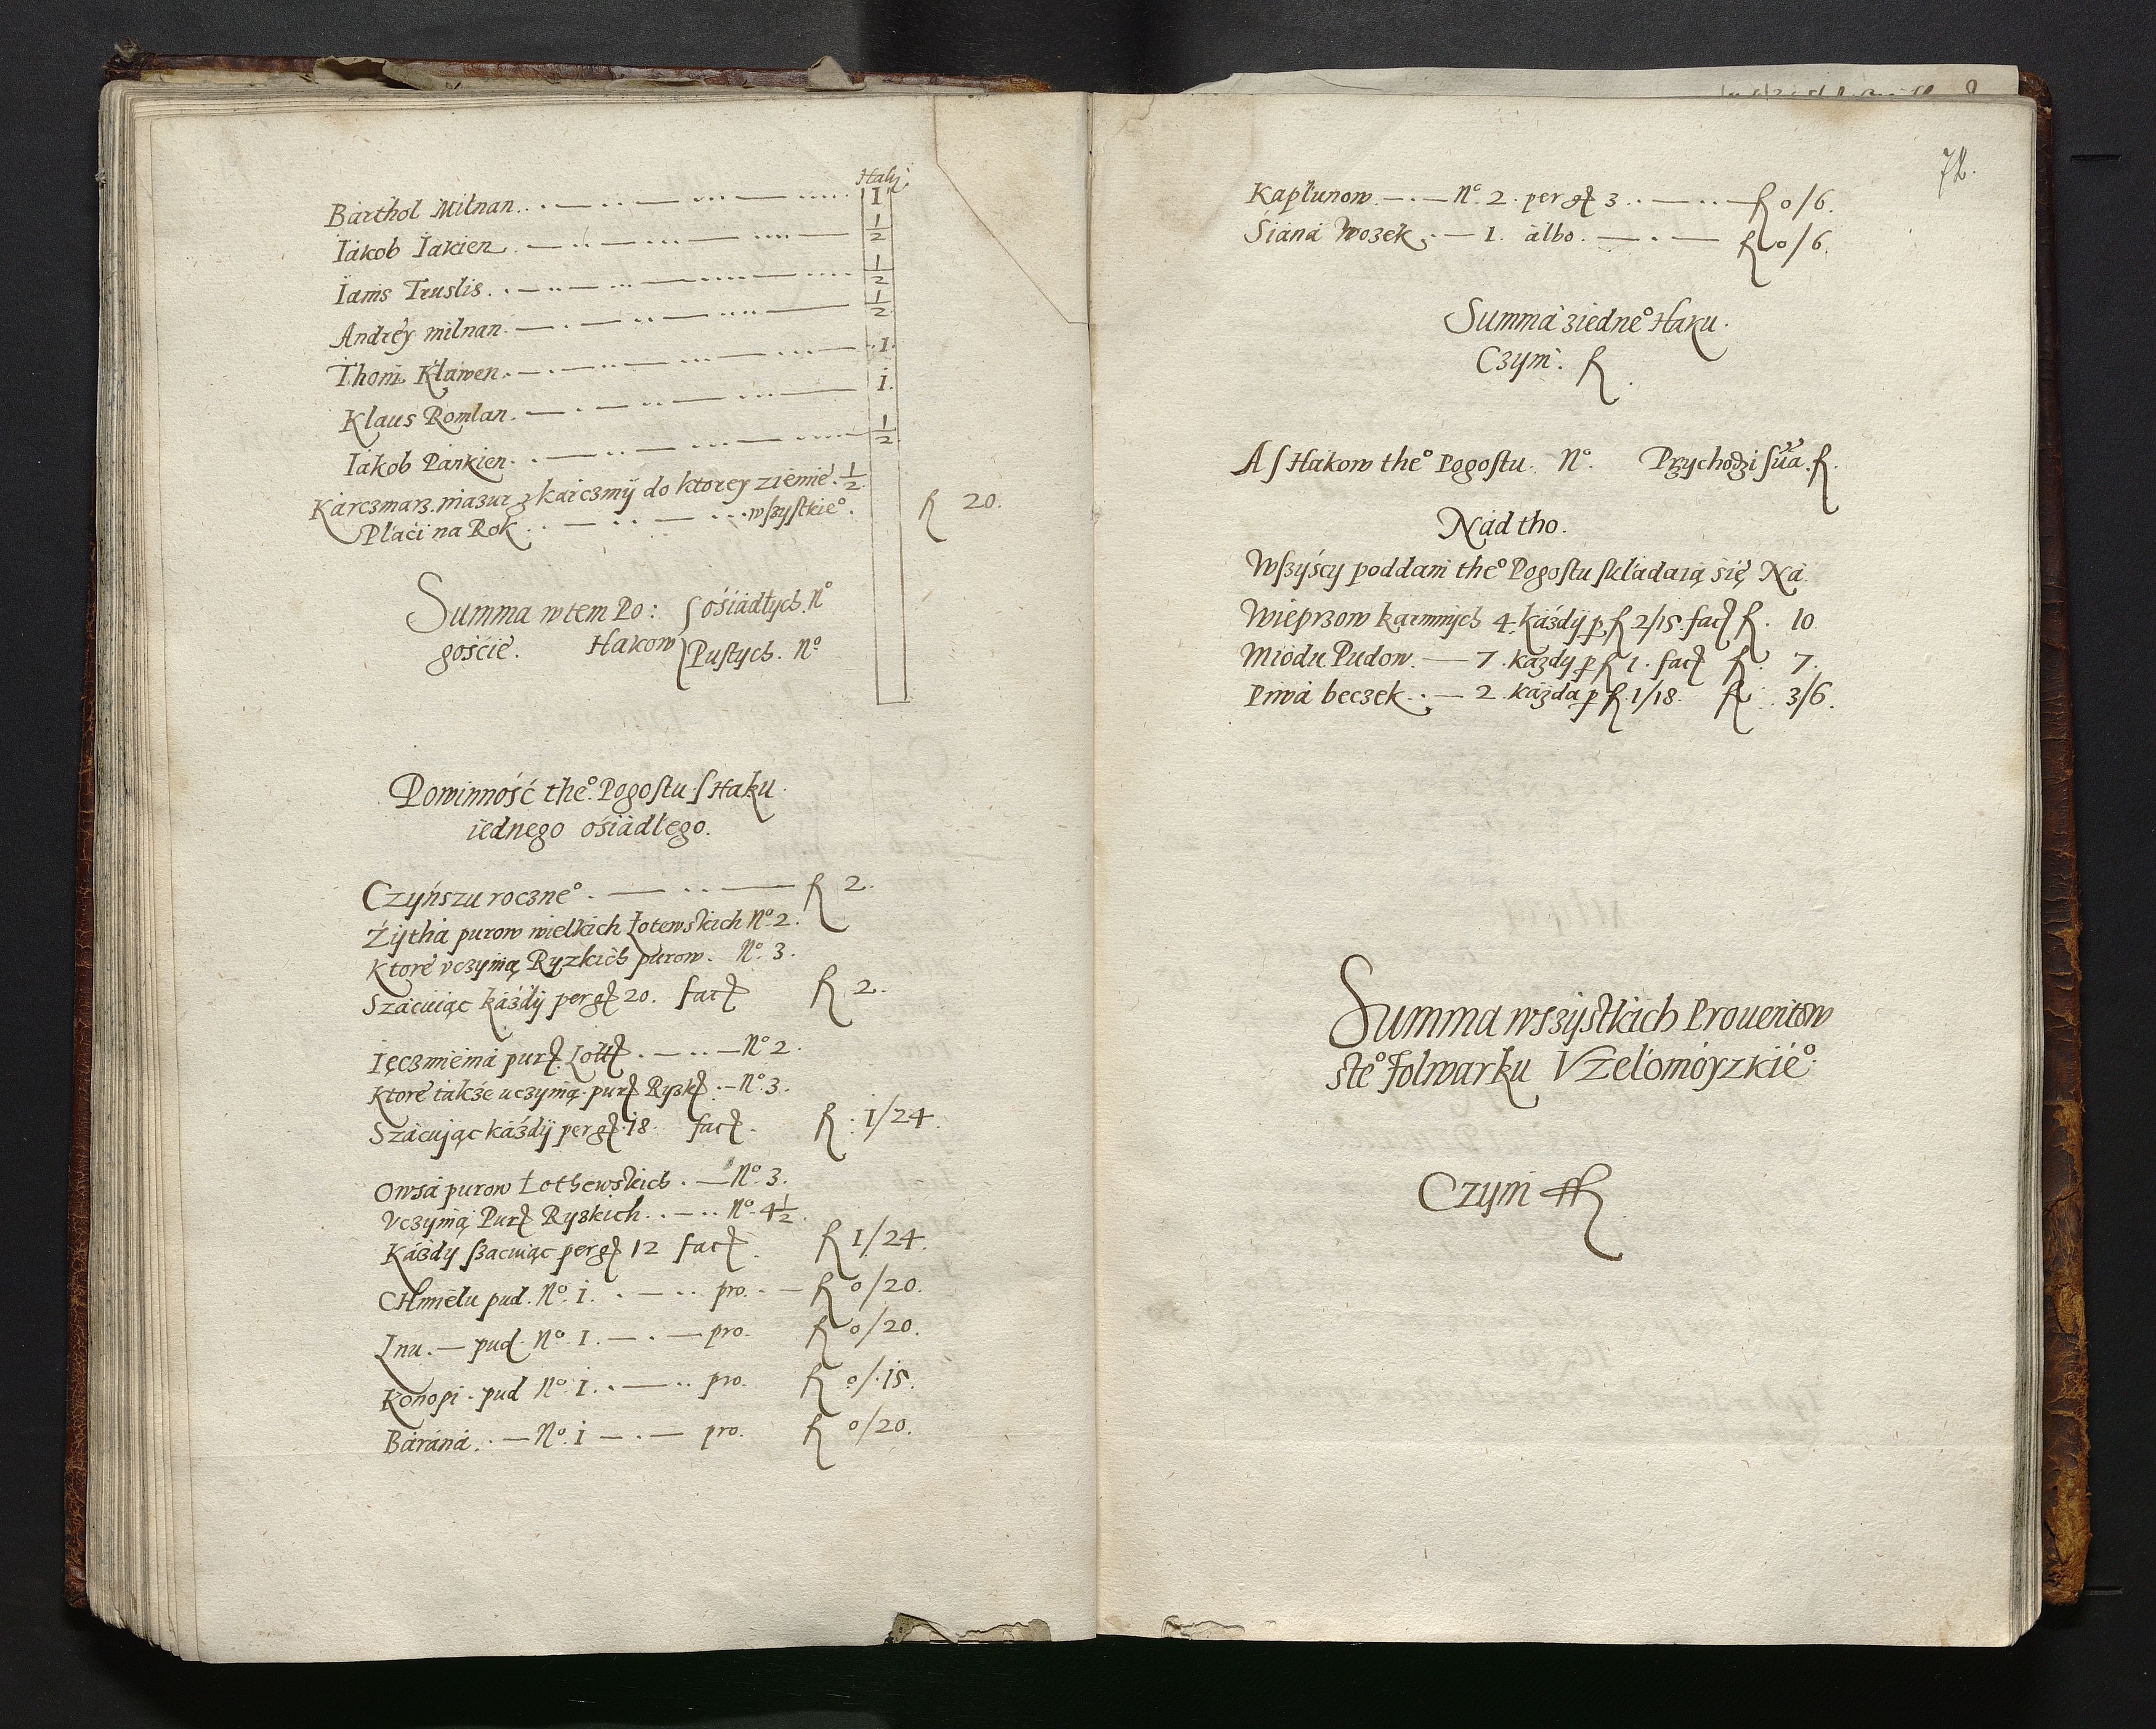 Haki
Barthol Milnan. 1
Iakob Iakien. ½
Ianis Truslis. ½
Andrey milnan. ½
Thom Klawen. 1.
Klaus Romlan. 1.
Iakob Pankien. ½
Karczmarz mazur z karczmÿ do ktorey ziemie. ½
Płaci na Rok wszystkie°. fl 20.
Summa w tem Po: Hakow ośiadłych. N°
gościé. Pustych. N°
Powinność the° Pogostu s Haku
iednego ośiadłego.
Czyńszu roczne°. fl 2.
Żÿtha purow wielkich Łotewskich N° 2.
Ktoré vczynią Ryzkich purow. N° 3.
Szacuiąc każdÿ per gł 20. facł fl 2.
Ięczmienia purł Łotł. N° 2.
Ktoré także uczynią purł Ryzkł. N° 3.
Szacując każdÿ per gł 18. facł. fl 1/24.
Owsa purow Łothewskich. N° 3.
Vczynią Purł Ryzkich. N° 4½.
Każdy szacuiąc per gł 12 facł. fl 1/24.
CHmielu pud. N° 1. pro. fl 0/20.
Lnu. pud. N° 1. pro. fl 0/20.
Konopi. pud N° 1. pro. fl 0/15.
Barana. N° 1 pro. fl 0/20.
72.
Kapłunow. N° 2. per gł 3. fl 0/6.
Śiana wozek. 1. albo. fl 0/6.
Summa ziedne° Haku.
Czyni. fl.
A s Hakow the° Pogostu. N°. Przychodzi sũa. fl.
Nad tho.
Wszyścy poddani the° Pogostu składaią się Na
Wieprzow karmnych 4. każdy p fl 2/15. facł fl. 10
Miodu Pudow. 7. każdy p fl 1. facł fl. 7.
Piwa beczek. 2 każda p fl. 1/18. fl. 3/6.
Summa wszystkich Prouentow
ste° folwarku Vzelomoyzkie°.
Czyni fl